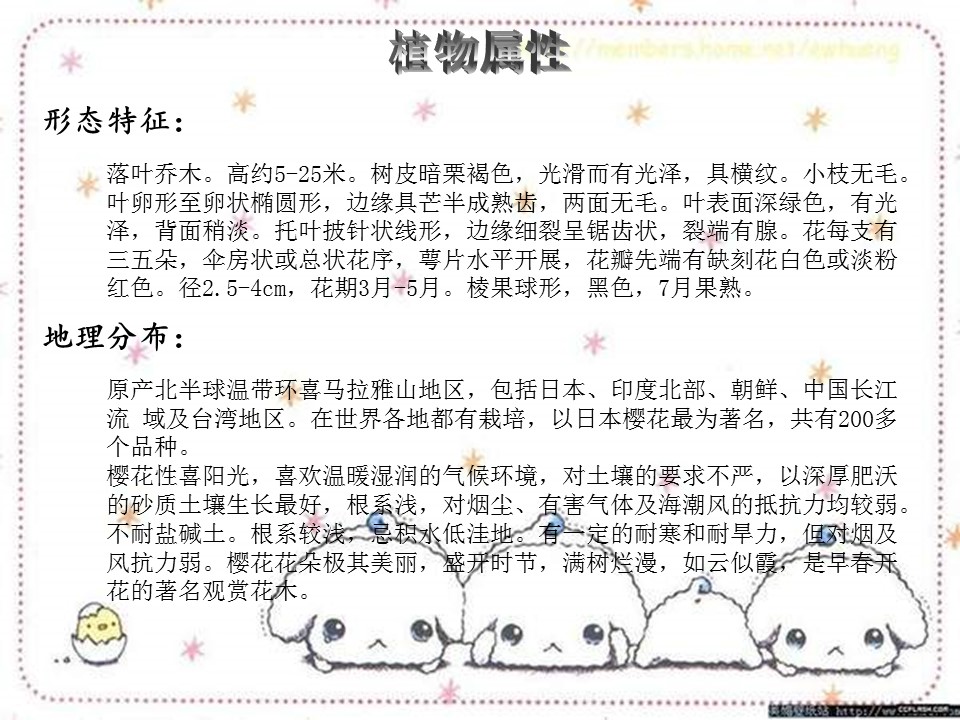 植物属性
//members.home.net/ewhuang
形态特征：
落叶乔木。高约5-25米。树皮暗栗褐色，光滑而有光泽，具横纹。小枝无毛。
叶卵形至卵状椭圆形，边缘具芒半成熟齿，两面无毛。叶表面深绿色，有光
泽，背面稍淡。托叶披针状线形，边缘细裂呈锯齿状，裂端有腺。花每支有
三五朵，伞房状或总状花序，萼片水平开展，花瓣先端有缺刻花白色或淡粉
红色。径2.5-4cm，花期3月-5月。棱果球形，黑色，7月果熟。
地理分布：
原产北半球温带环喜马拉雅山地区，包括日本、印度北部、朝鲜、中国长江
流 域及台湾地区。在世界各地都有栽培，以日本樱花最为著名，共有200多
个品种。
樱花性喜阳光，喜欢温暖湿润的气候环境，对土壤的要求不严，以深厚肥沃
的砂质土壤生长最好，根系浅，对烟尘、有害气体及海潮风的抵抗力均较弱。
不耐盐碱土。根系较浅，忌积水低洼地。有一定的耐寒和耐旱力，但对烟及
风抗力弱。樱花花朵极其美丽，盛开时节，满树烂漫，如云似霞，是早春开
花的著名观赏花木。
http://w
CCFLASH.COM